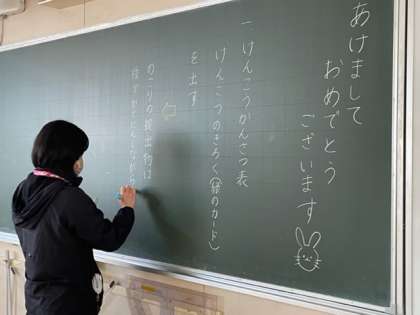 あけまして
おめでとう
ございます
一けんこうかんさつ表
けんこうのきろく(緑のカード)
を出す
のこりの提出物は